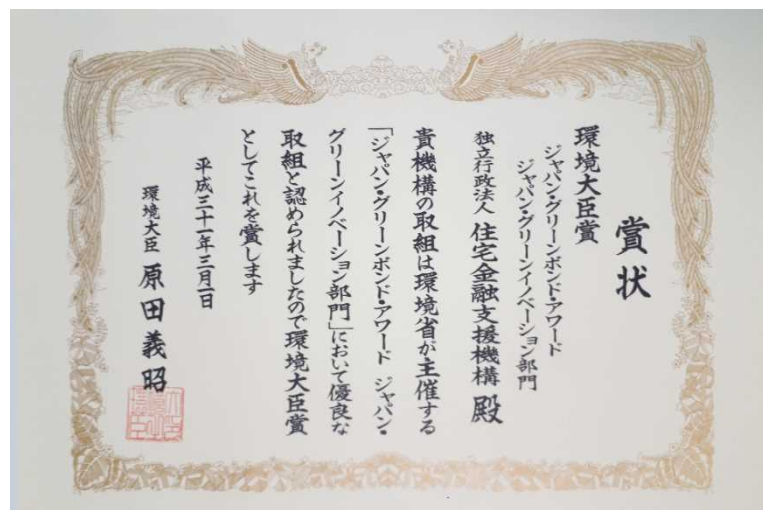 賞状
環境大臣賞
ジャパン・グリーンボンド・アワード
ジャパン・グリーンイノベーション部門
独立行政法人 住宅金融支援機構 殿
貴機構の取組は環境省が主催する
「ジャパン・グリーンボンド・アワード ジャパン・
グリーンイノベーション部門」において優良な
取組と認められましたので環境大臣賞
としてこれを賞します
平成三十一年三月一日
環境大臣 原田義昭